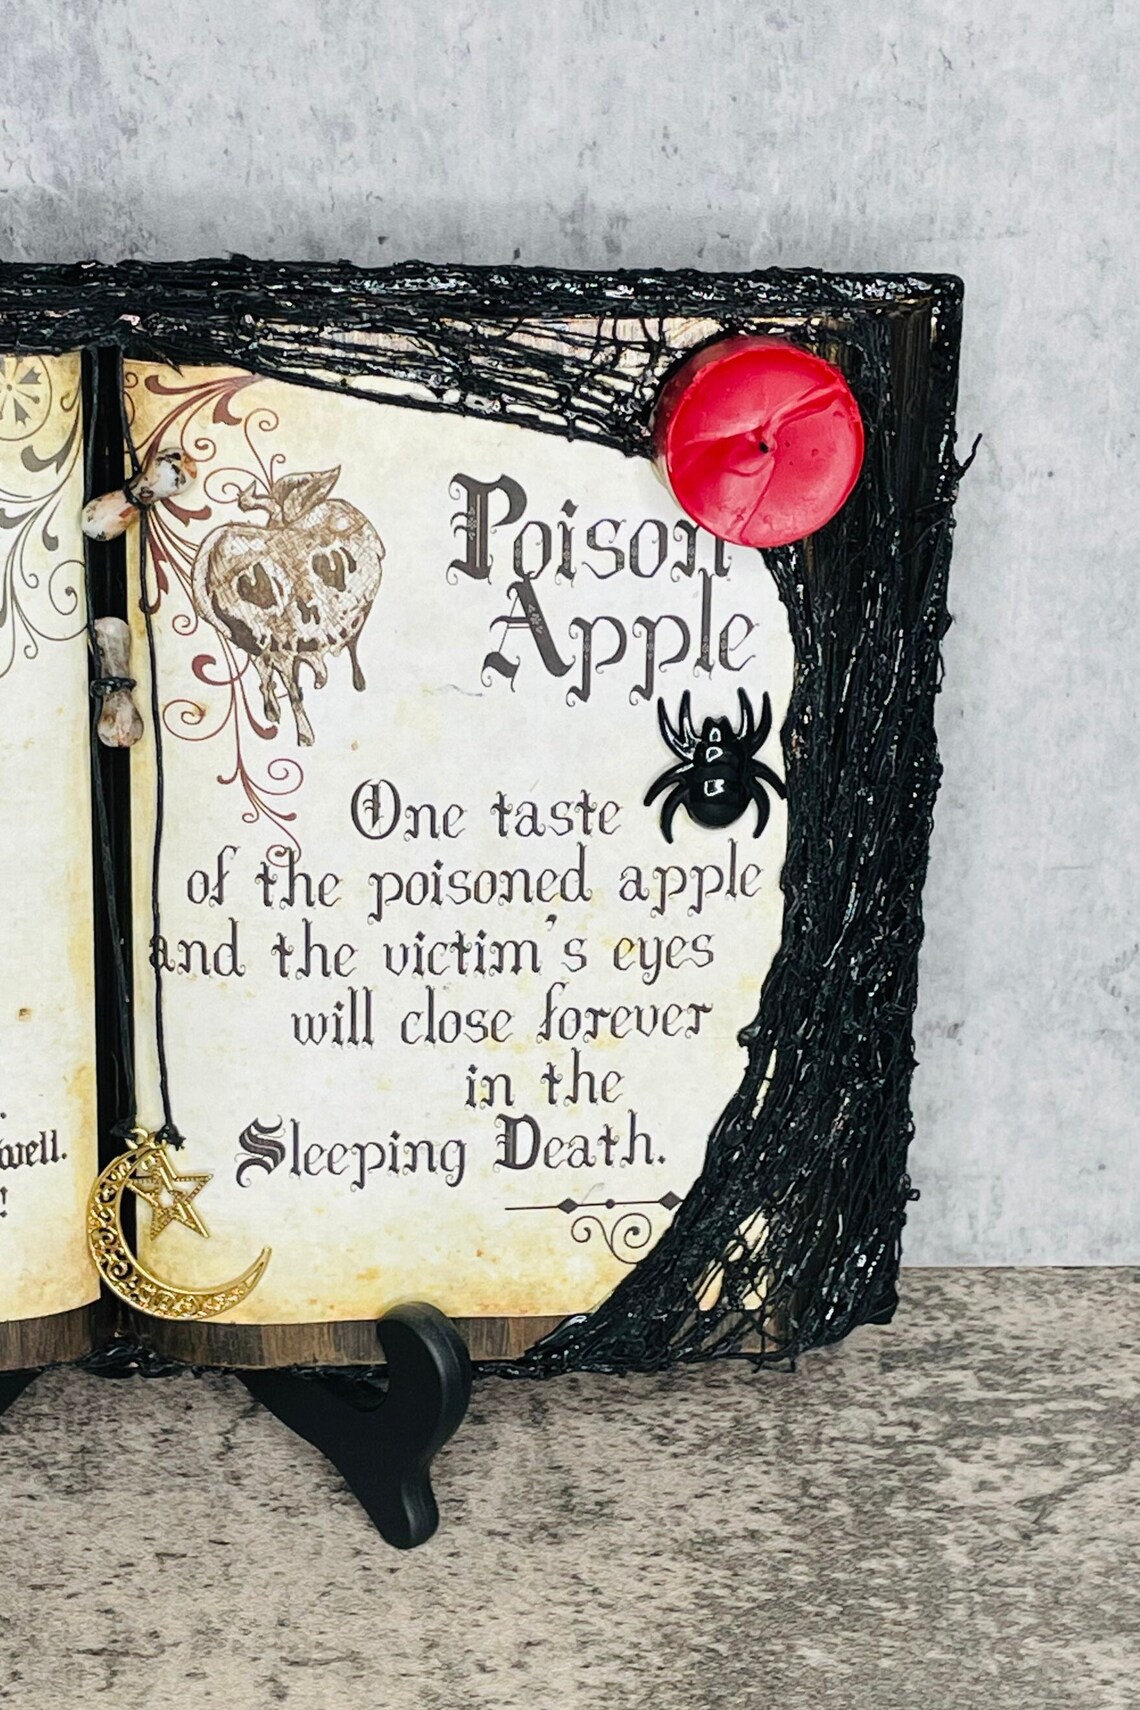 well.
!
Poison
Apple
One taste
of the poisoned apple
and the victim's eyes
will close forever
in the
Sleeping Death.